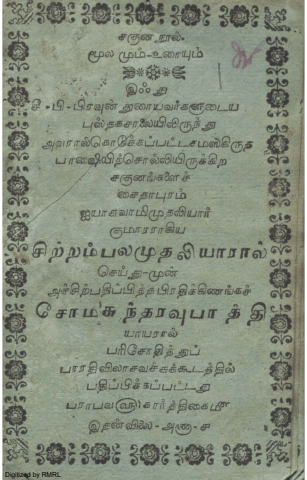 சகுன நூல்
மூலமும்-உரையும்
இஃது
சீ-பி-பிரவுன் துரையவர்களுடைய
புஸ்தகசாலையிலிருந்து
அவரால்கொடுக்கப்பட்டசமஸ்கிருத
பாஷையிற்சொல்லியிருக்கிற
சகுனங்களைச்
சைதாபுரம்
ஐயாசுவாமிமுதலியார்
குமாரராகிய
சிற்றம்பலமுதலியாரால்
செய்து-முன்
அச்சிற்பதிப்பித்தபிரதிக்கிணங்கச்
சோமசுந்தரவுபாத்தி
யாயரால்
பரிசோதித்துப்
பாரதிவிலாசவச்சுக்கூடத்தில்
பதிப்பிக்கப்பட்டது
பராபவ௵கார்த்திகை௴
இதன்விலை-அணா-ச
Digitized by RMRL